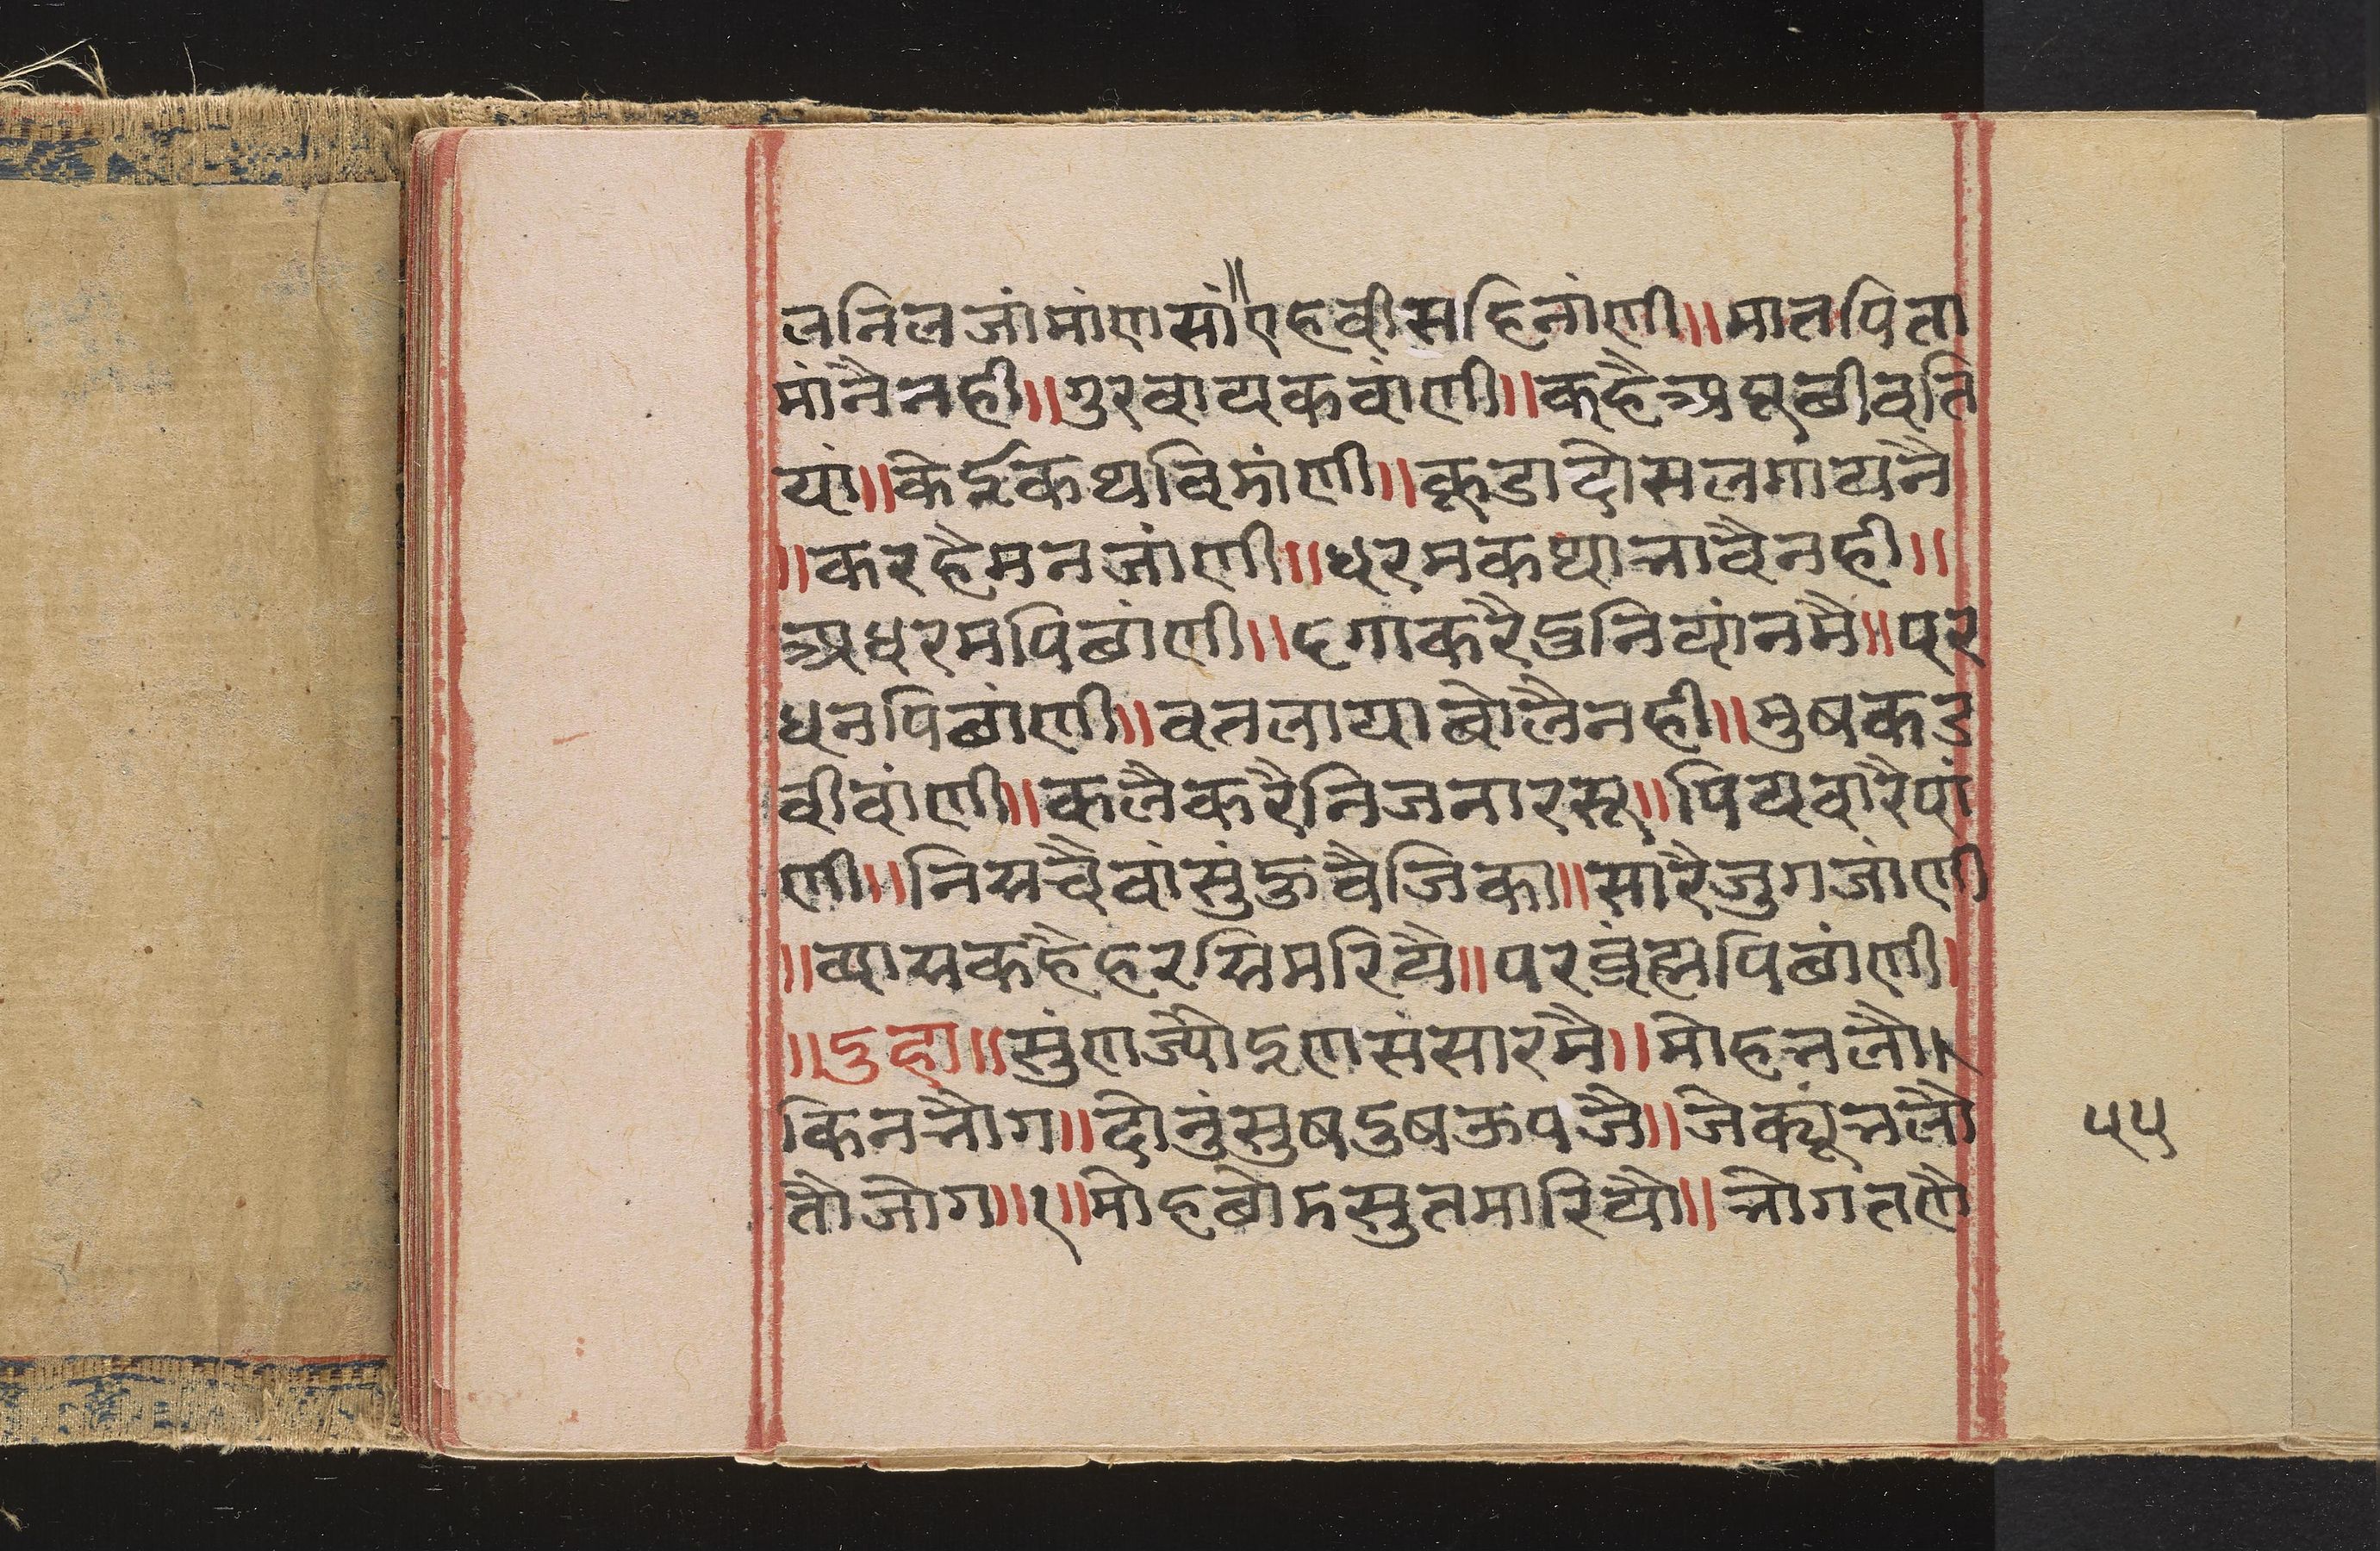 लनिलजांमांणसां॥एहवीसहिनांणी॥मातपिता
मांनैनही॥गुरवायकवांणी॥कहैअपूछीवति
यां॥केईकथविमांणी॥कूडादोसलगायनै
॥करहैमनजांणी॥धरमकथाभावैनही॥
अधरमपिछांणी॥दगाकरैदुनियांनमै॥पर
धनपिछांणी॥वतलायाबोलैनही॥मुषकड
वीवांणी॥कलैकरैनिजनारसू॥पियवारैपां
णी॥निसचैवांसुंऊवैजिका॥सारैजुगजांणी
॥व्यासकहैहरसिमरियै॥परब्रंह्मपिछांणी।
॥दुहा॥सुंणज्योइणसंसारमै॥मोहभलौ।
किनभोग॥दोनुंसुषदुषऊपजै॥जेक्यूंभलौ
तौजोग॥१॥मोहछोडसुतमारियौ॥भोगतणै
५५